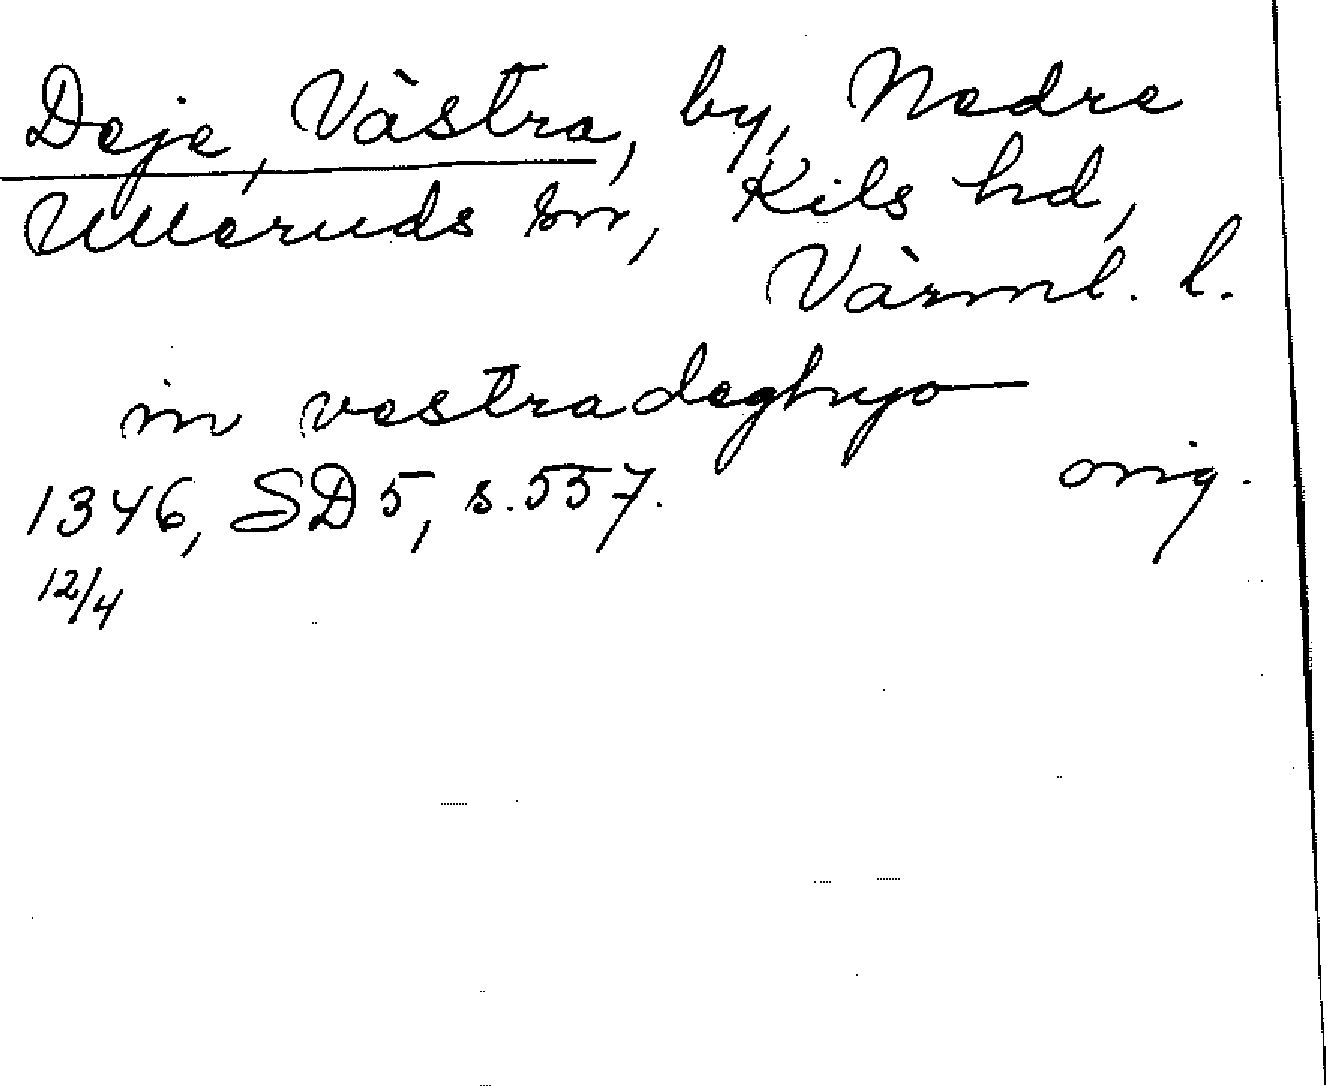 Deje, Västra, by, Nedre
Ulleruds sn, Kils hd,
Värml. l.
in vestradeghyo—
1346, SD 5, s. 557. orig.
12/4